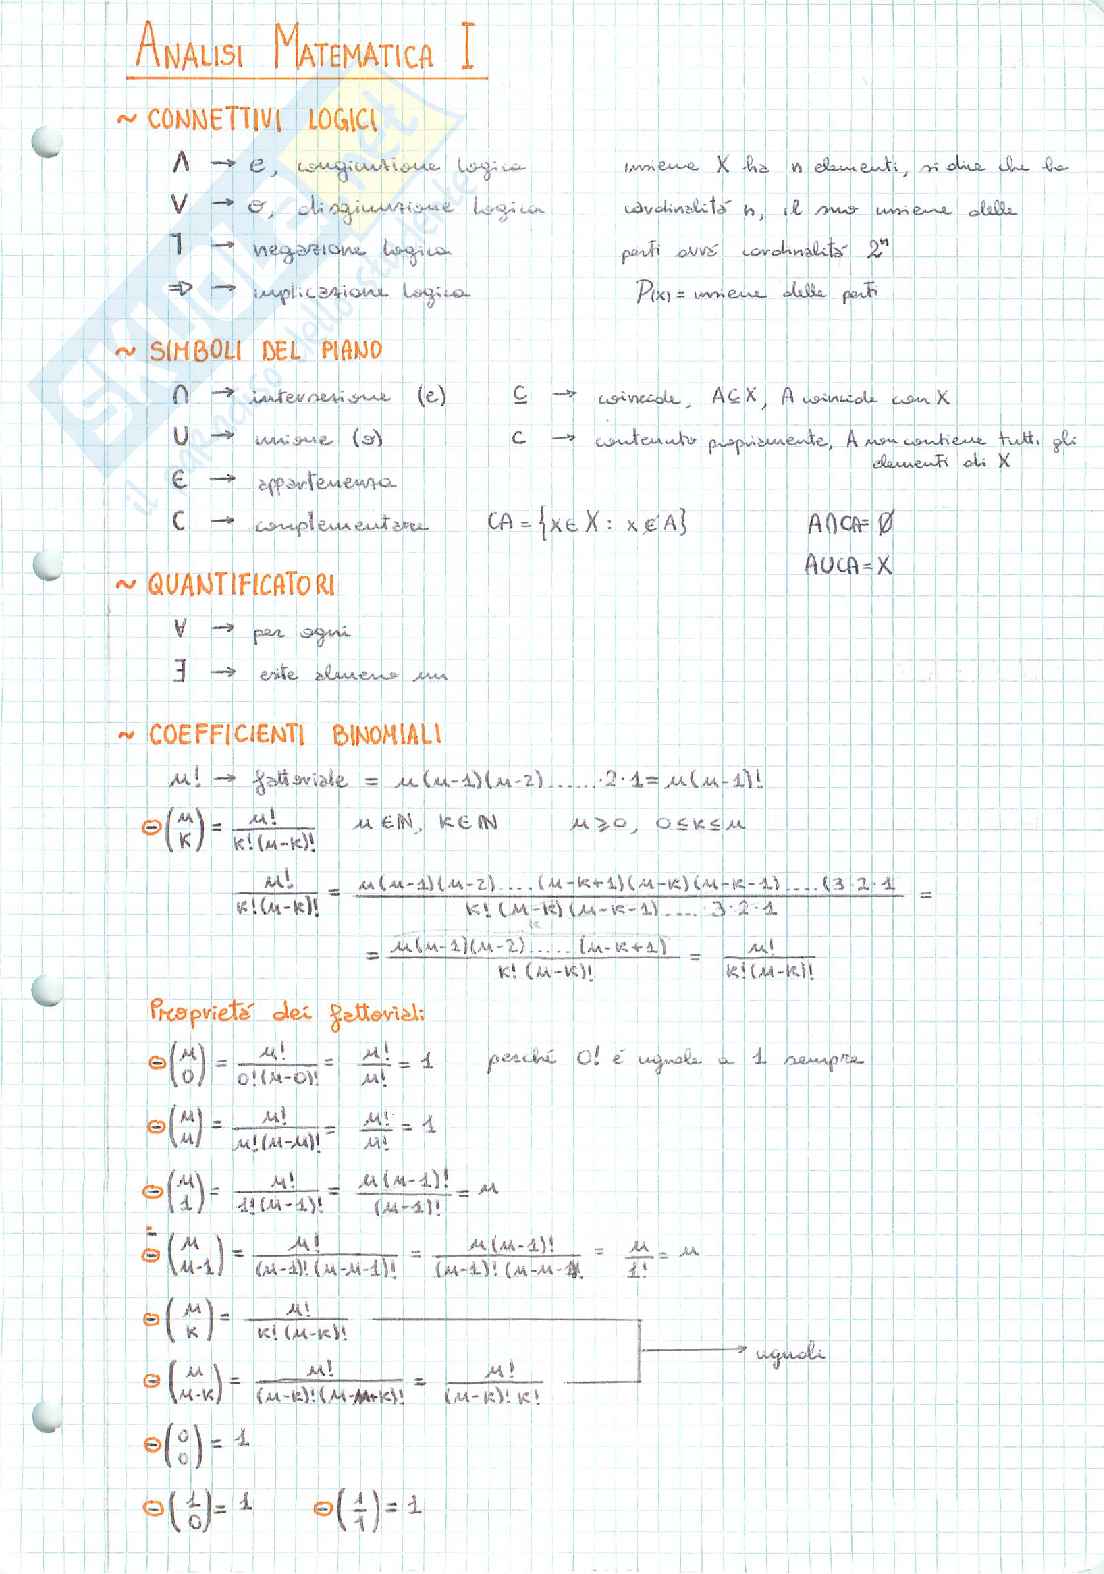 ANALISI MATEMATICA I
~ CONNETTIVI LOGICI
Λ → e, congiunzione logica
V → o, disgiunzione logica
ᒣ → negazione logica
⇒ → implicazione logica
insieme X ha n elementi, si dice che ha
cardinalitá n, il suo insieme delle
parti avrá cardinalitá 2ⁿ
P(x) = insieme delle parti
~ SIMBOLI DEL PIANO
∩ → intersezione (e)
∪ → unione (o)
∈ → appartenenza
C → complementare
⊆ → coincide, A⊆X, A coincide con X
⊂ → contenuto propriamente, A non contiene tutti gli
elementi di X
CA = {x∈X : x∉A}
A∩CA=∅
A∪CA=X
~ QUANTIFICATORI
∀ → per ogni
∃ → esite almeno un
~ COEFFICIENTI BINOMIALI
n! → fattoriale = n(n-1)(n-2)......·2·1 = n(n-1)!
⊖ (n k) = n!/k!(n-k)! n∈ℕ, k∈ℕ n≥0, 0≤k≤n
n!/k!(n-k)! = n(n-1)(n-2)....(n-k+1)(n-k)(n-k-1)....(3·2·1/k!(n-k)(n-k-1)....3·2·1 =
= n(n-1)(n-2).....(n-k+1)/k!(n-k)! = n!/k!(n-k)!
Proprietá dei fattoriali:
⊖ (n 0) = n!/0!(n-0)! = n!/n! = 1 perché 0! é uguale a 1 sempre
⊖ (n n) = n!/n!(n-n)! = n!/n! = 1
⊖ (n 1) = n!/1!(n-1)! = n(n-1)!/(n-1)! = n
⊖ (n n-1) = n!/(n-1)!(n-n-1)! = n(n-1)!/(n-1)!(n-n-1)! = n/1! = n
⊖ (n k) = n!/k!(n-k)!
→ uguali
⊖ (n n-k) = n!/(n-k)!(n-n+k)! = n!/(n-k)!k!
⊖ (0 0) = 1
⊖ (1 0) = 1 ⊖ (1 1) = 1
SKUOLA.net